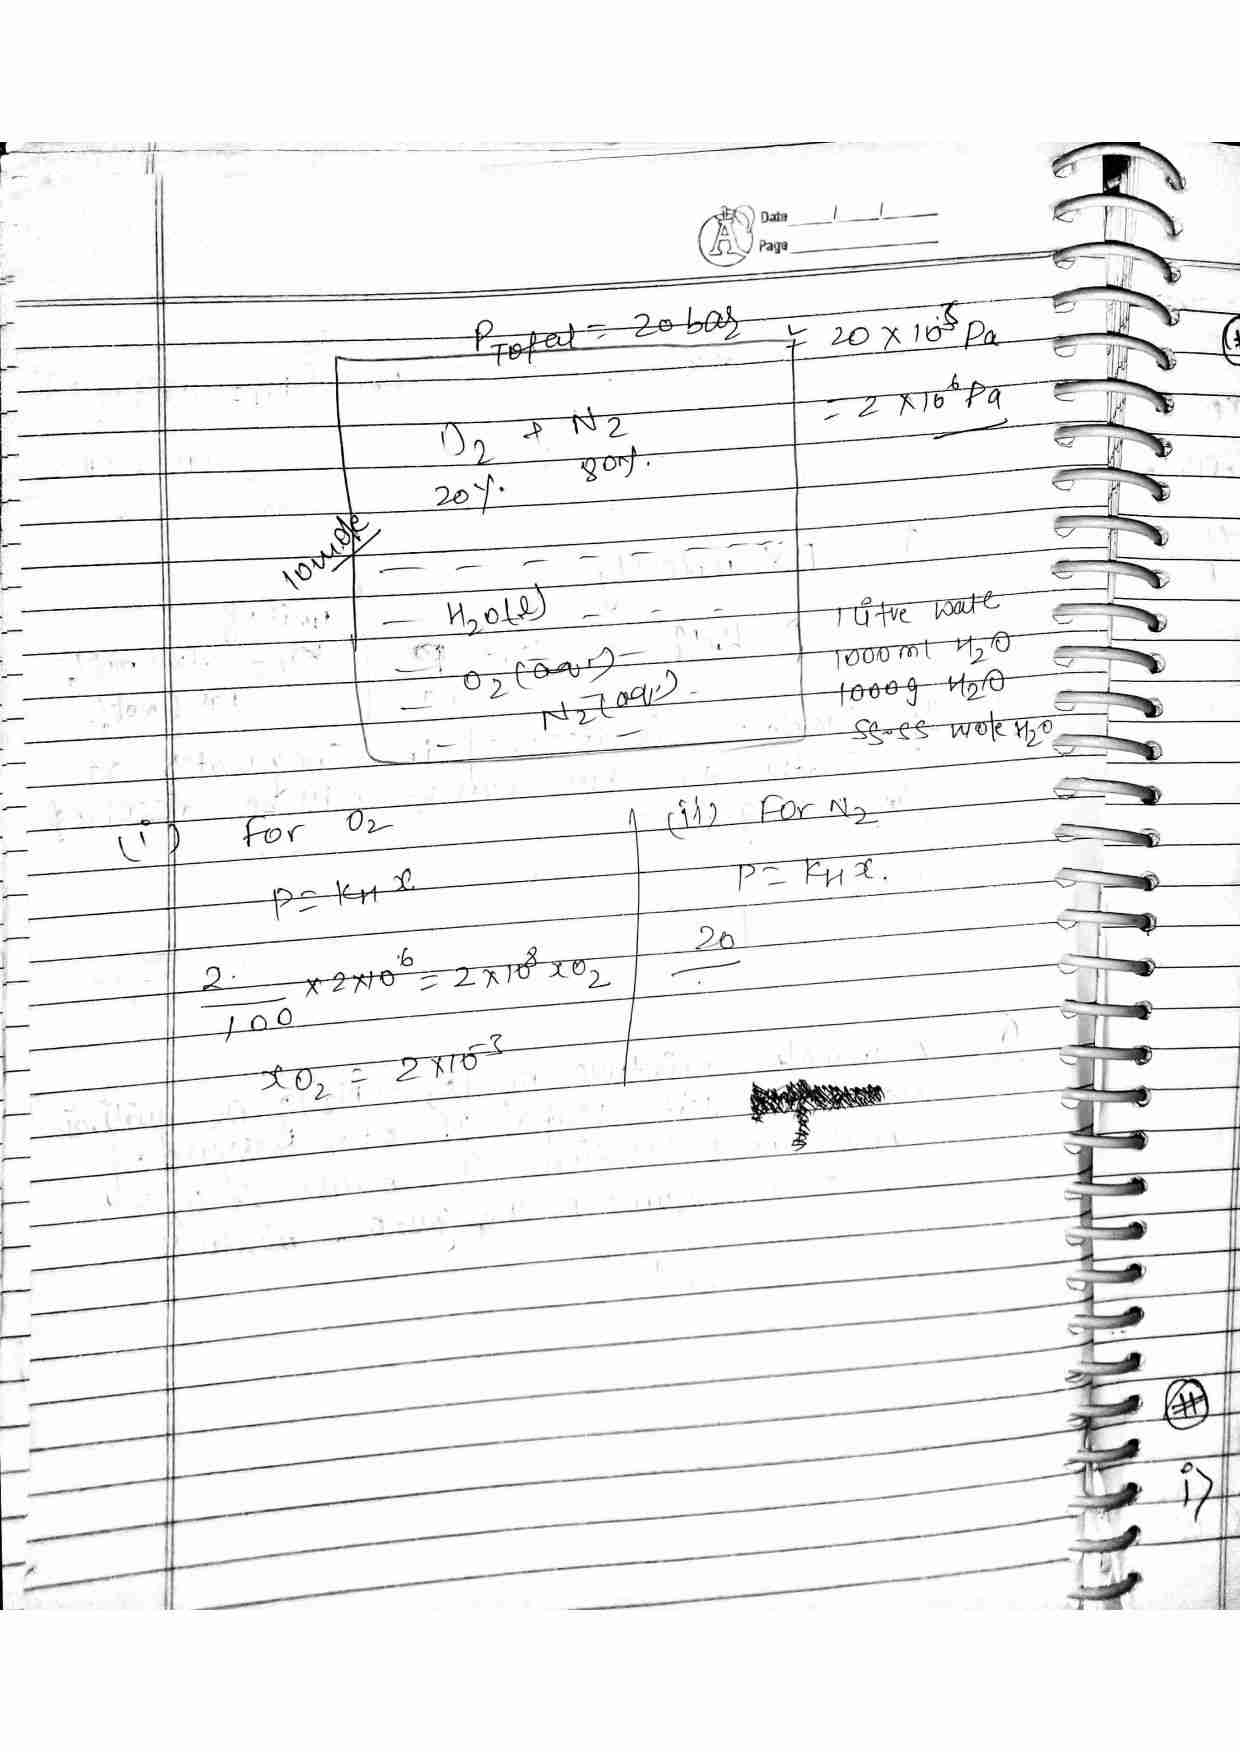 Date
Page
P Total = 20 bar = 20 × 10^5 Pa
= 2 × 10^6 Pa
O2 + N2
20% 80%
10 mole
H2O(l)
O2 (aq)
N2 (aq)
1 litre wate
1000 ml H2O
1000g H2O
55.55 mole H2O
(i) For O2
P = KH x
2/100 × 2×10^6 = 2×10^8 xO2
xO2 = 2×10^-3
(ii) For N2
P = KH x.
20
#
i)